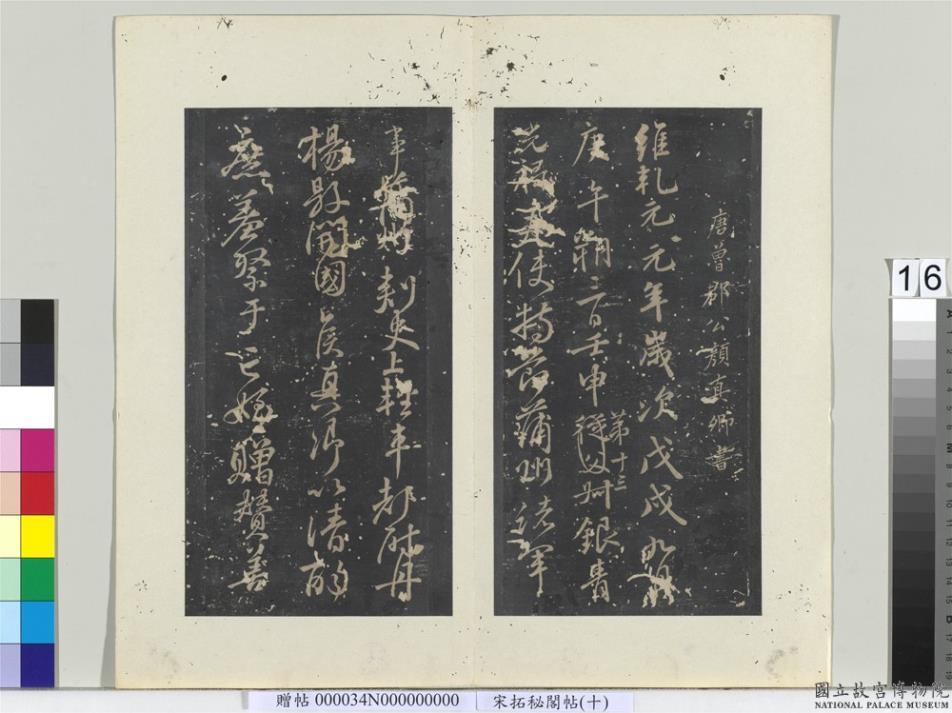 唐魯郡公顏真卿書
維乾元元年歲次戊戌九月
庚午朔三日壬申第十三從父叔銀青
光祿夫使持節蒲州諸軍
事蒲州刺史上輕車都尉丹
楊縣開國侯真卿以清酌
庶羞祭于亡姪贈贊善
16
贈帖 000034N000000000 宋拓秘閣帖(十)
國立故宮博物院
NATIONAL PALACE MUSEUM